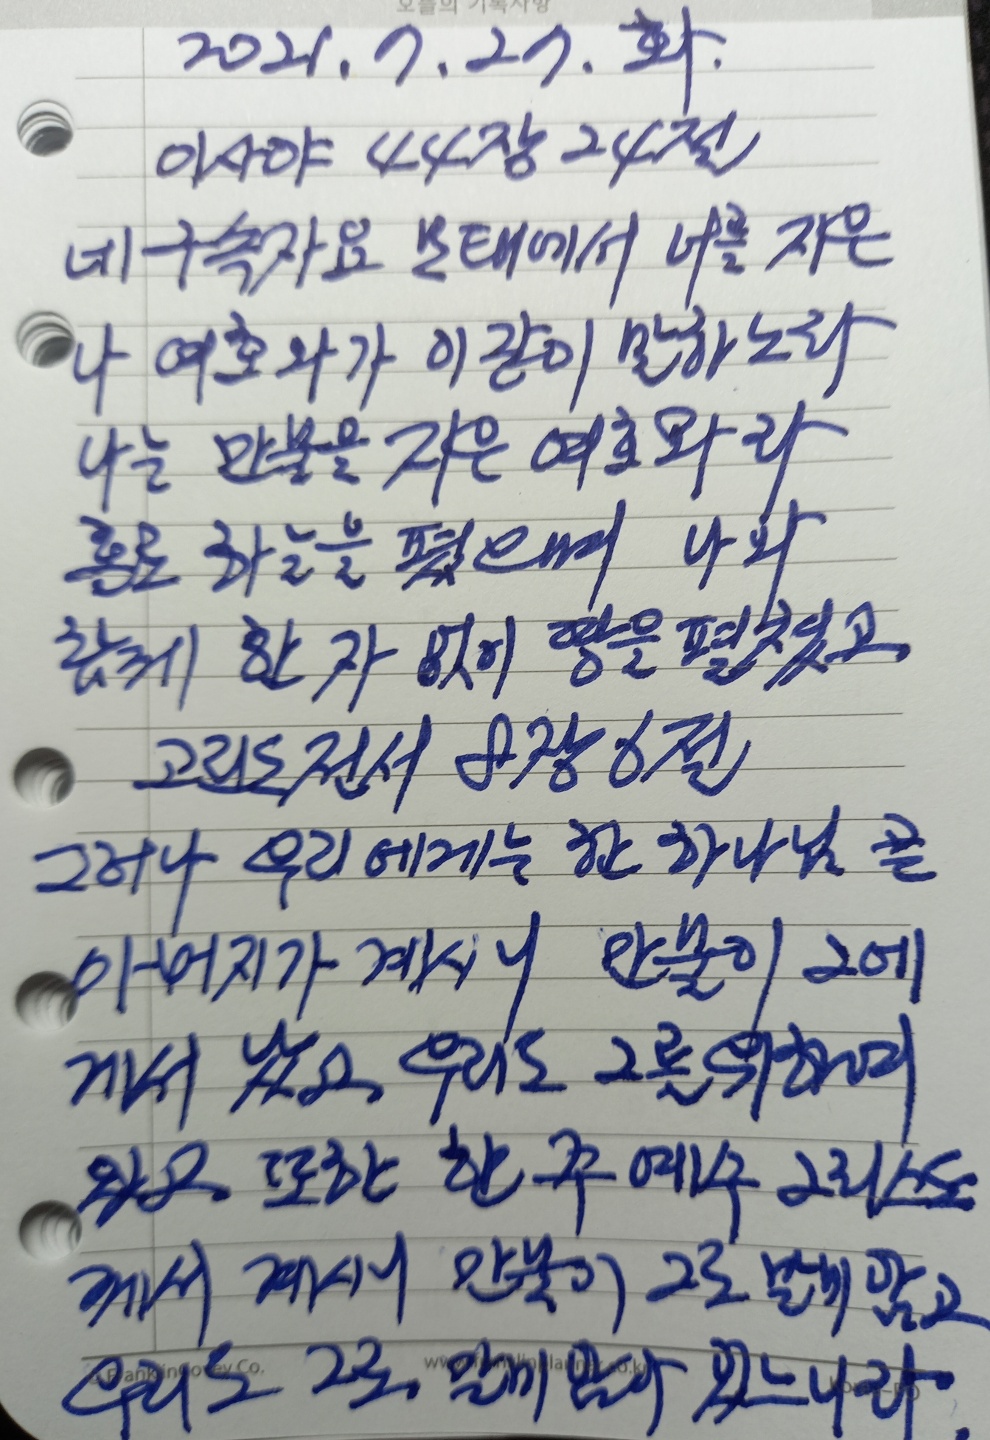 오늘의 기록사항
2021. 7. 27. 화.
이사야 44장 24절
네 구속자요 모태에서 너를 지은
나 여호와가 이같이 말하노라
나는 만물을 지은 여호와라
홀로 하늘을 폈으며 나와
함께 한 자 없이 땅을 펼쳤고
고린도전서 8장 6절
그러나 우리에게는 한 하나님 곧
아버지가 계시니 만물이 그에
게서 났고 우리도 그를 위하며
또한 한 주 예수 그리스도
께서 계시니 만물이 그로 말미암고
우리도 그로 말미암아 있느니라.
FranklinCovey Co. www.franklinplanner.co.kr